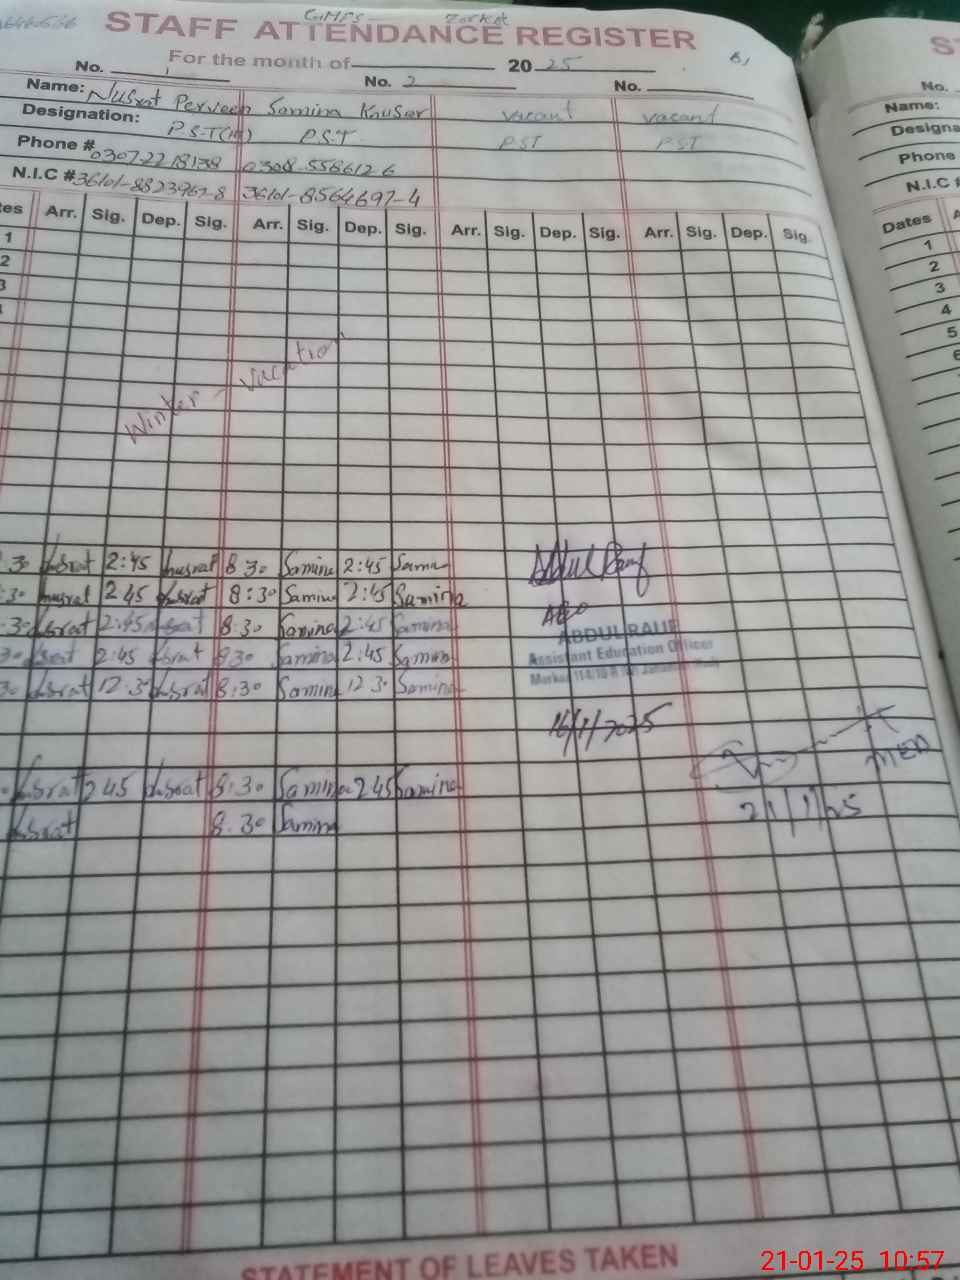 GMPS Zorkot
STAFF ATTENDANCE REGISTER
For the month of 2025
No. 1 No. 2 No.
Name: Nusrat Perveen Samina Kausar vacant vacant
Designation: P.S.T(M) P.S.T PST PST
Phone # 0307-2218138 0308-5586126
N.I.C # 36101-8823967-8 36101-8564697-4
Arr. Sig. Dep. Sig. Arr. Sig. Dep. Sig. Arr. Sig. Dep. Sig. Arr. Sig. Dep. Sig.
1
2
3
Winter - vacation
:30 Nusrat 2:45 Nusrat 8 30 Samina 2:45 Samina
:30 Nusrat 2 45 Nusrat 8:30 Samina 2:45 Samina
:30 Nusrat 2:45 Nusrat 8:30 Samina 2:45 Samina
30 Nusrat 2:45 Nusrat 8 30 Samina 2:45 Samina
30 Nusrat 12 30 Nusrat 8:30 Samina 12 30 Samina
Nusrat 2 45 Nusrat 8:30 Samina 2 45 Samina
Nusrat 8.30 Samina
AEO
ABDUL RAUF
Assistant Education Officer
16/1/2025
21/1/25
STATEMENT OF LEAVES TAKEN
No.
Name:
Designa
Phone
N.I.C #
Dates
1
2
3
4
5
6
21-01-25 10:57